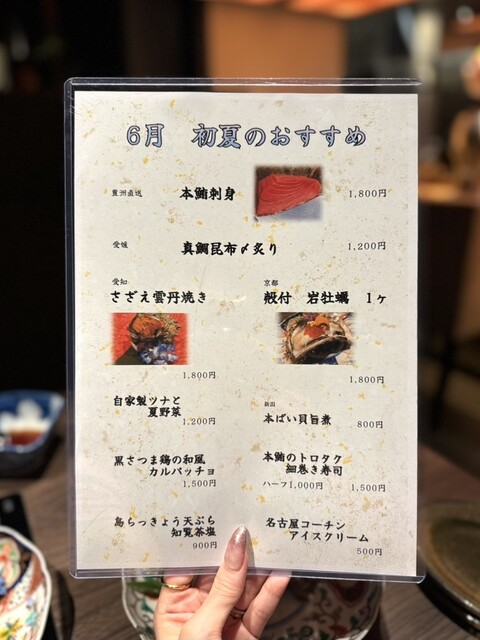 6月 初夏のおすすめ
豊洲直送 本鮪刺身 1,800円
愛媛 真鯛昆布〆炙り 1,200円
愛知
さざえ雲丹焼き
1,800円
京都
殻付 岩牡蠣 1ヶ
1,800円
自家製ツナと
夏野菜
1,200円
新潟
本ばい貝旨煮 800円
黒さつま鶏の和風
カルパッチョ
1,500円
本鮪のトロタク
細巻き寿司
ハーフ1,000円 1,500円
島らっきょう天ぷら
知覧茶塩
900円
名古屋コーチン
アイスクリーム
500円